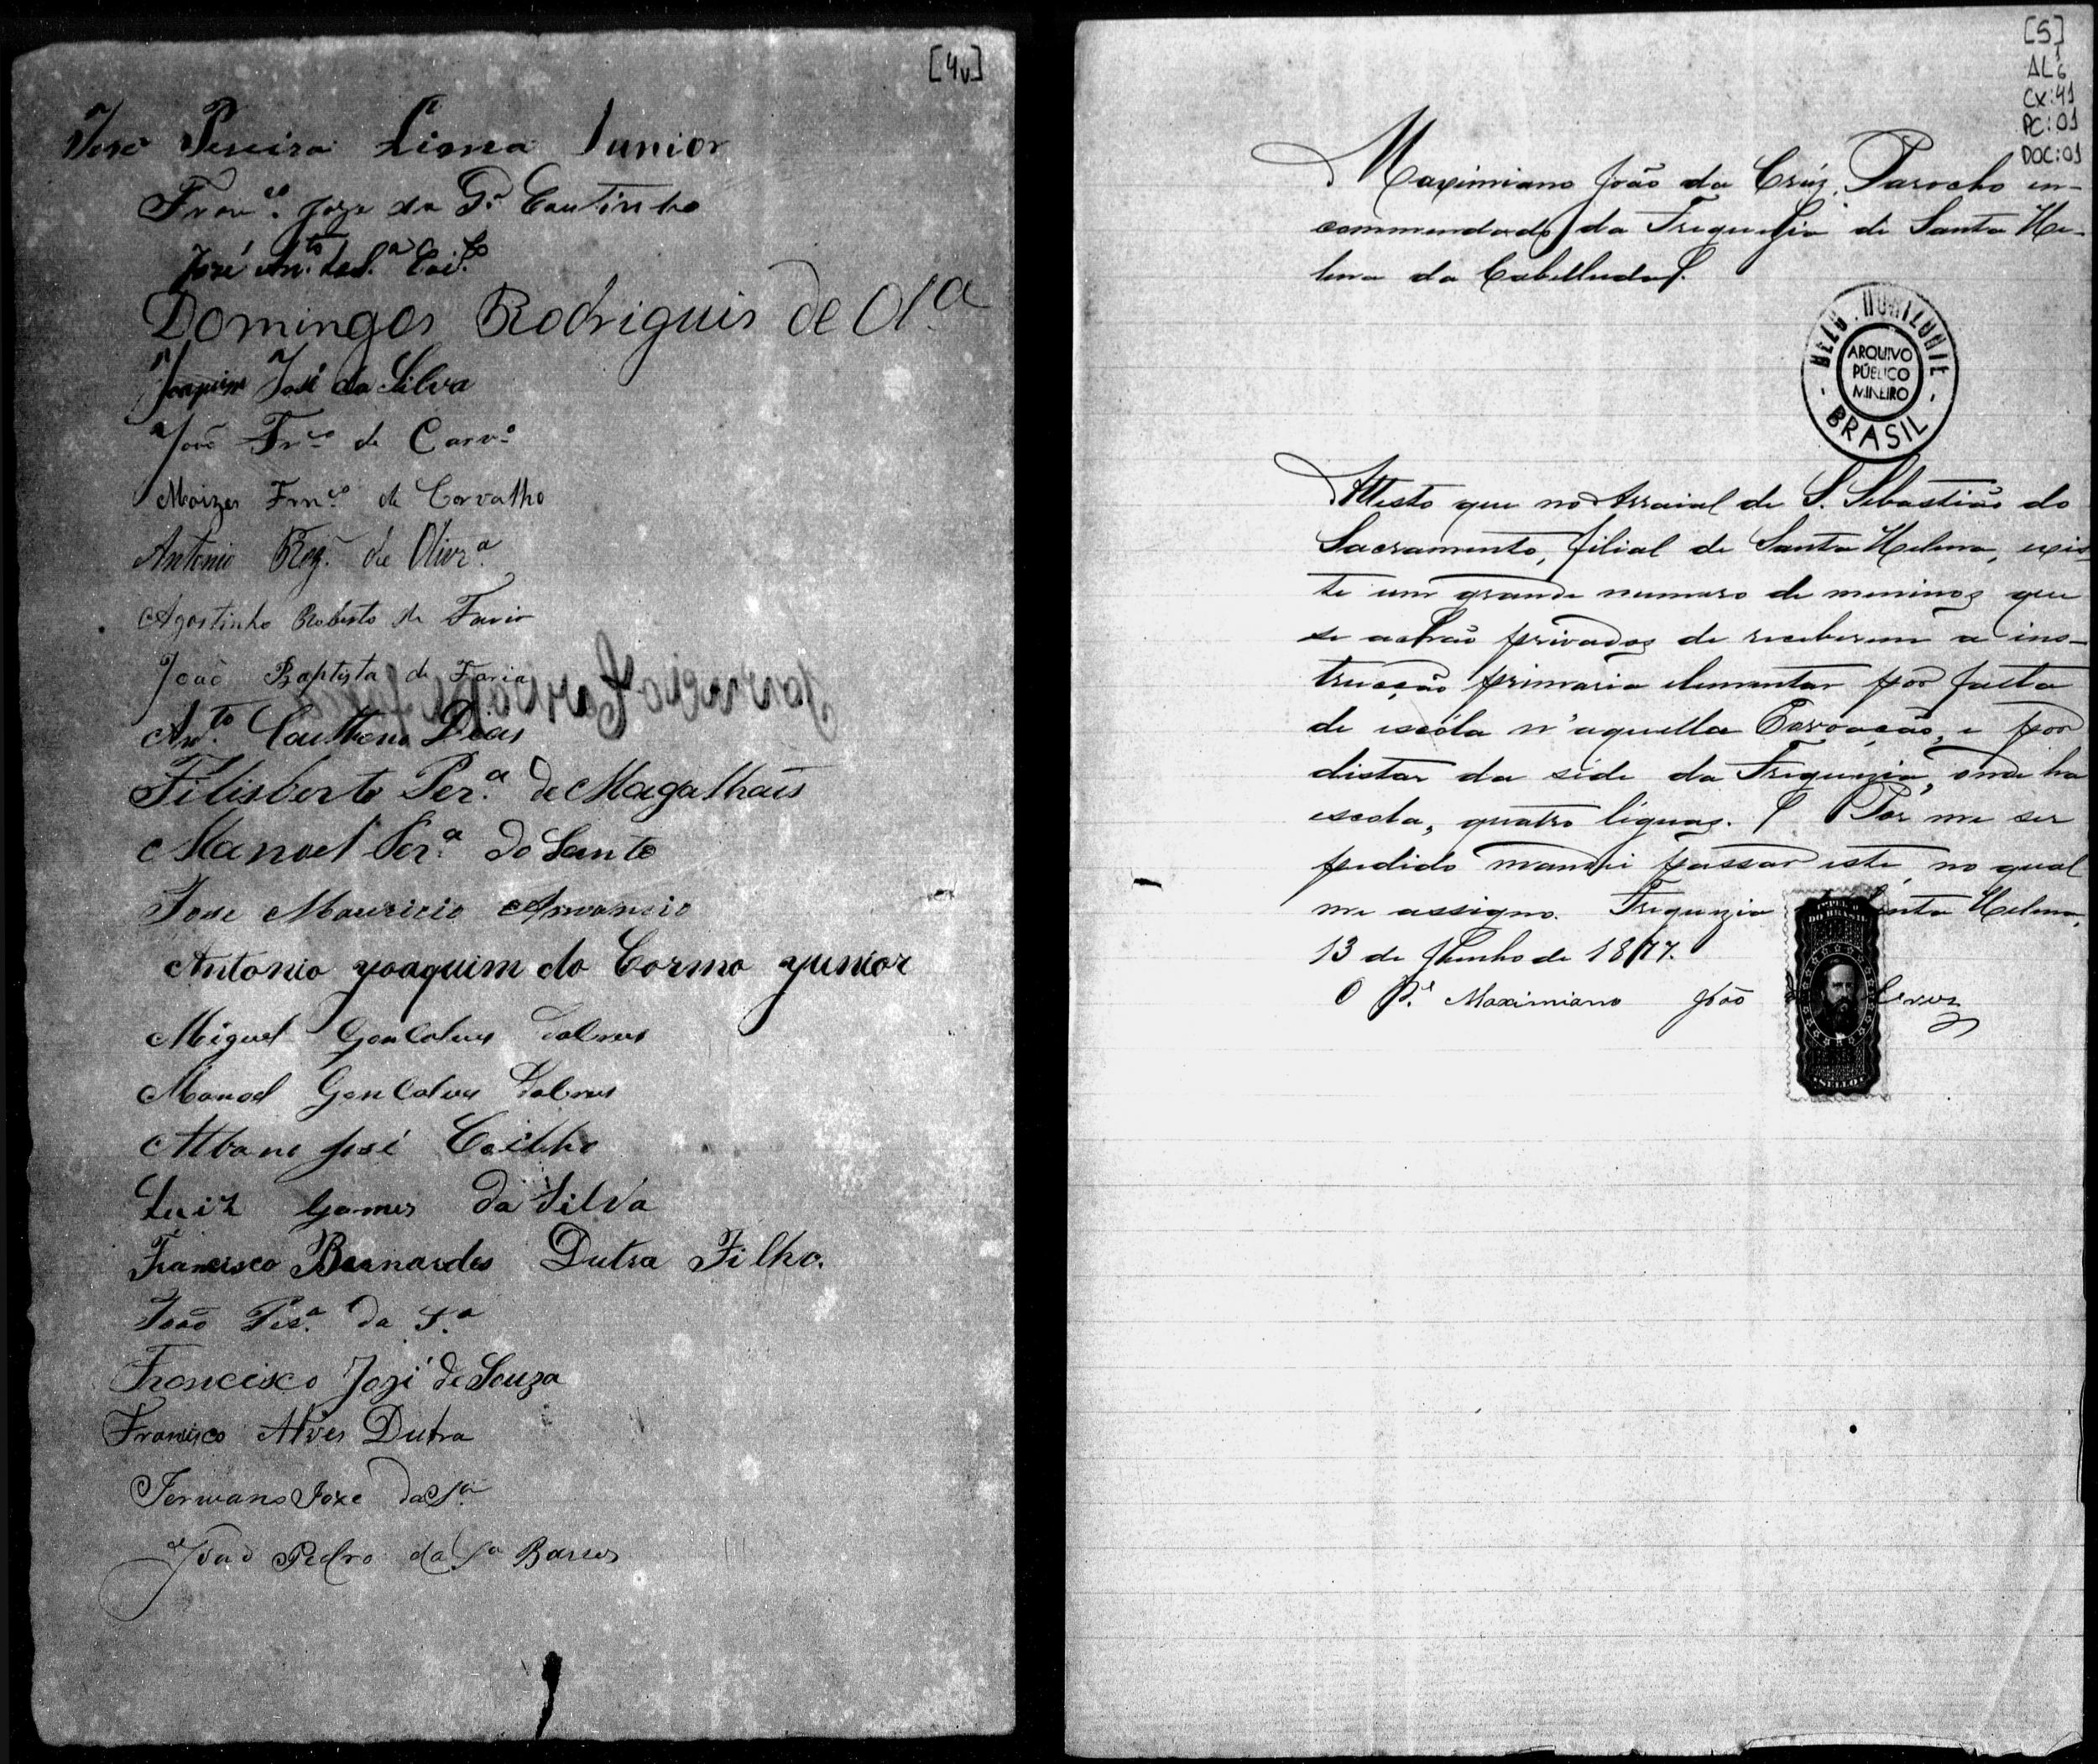 [4v]
José Pereira Lima Junior
Franco. Joze da Sa. Coutinho
José Anto. da Sa.
Domingos Rodriguis de Ola
Joaquim José da Silva
João Frco de Carvo
Moizes Franco. de Carvalho
Antonio Roz. de Olivra.
Agostinho Roberto de Faria
João Baptista de Faria
Anto. Dias
Filisberto Pera. de Magalhais
Manoel Pera. do Santo
Jose Mauricio Amancio
Antonio Joaquim do Carmo Junior
Miguel Goncalves
Manoel Goncalves
Albano José Coelho
Luiz Gomes da Silva
Francisco Bernardes Dutra Filho.
João Pera. da Sa
Francisco José de Souza
Francisco Alves Dutra
Jermano Joze da Sa
João Pedro da Sa Barros
[5]
AL6
CX:41
PC:01
DOC:01
Maximiano João da Crúz, Parocho en-
commendado da Freguesia de Santa He-
lena da Cabelluda.
BELLO HORIZONTE
ARQUIVO
PÚBLICO
MINEIRO
- BRASIL -
Attesto que no Arraial de S. Sebastião do
Sacramento, filial de Santa Helena, exis-
te um grande numero de meninos que
se achão privados de receberem a ins-
trucção primaria elementar por falta
de escóla n'aquella Povoação, e por
distar da séde da Freguezia, onde ha
escola, quatro léguas. Por me ser
pedido mandei passar este, no qual
me assigno. Freguezia Santa Helena,
13 de Junho de 1877.
O Pe. Maximiano João da Cruz
IMPERIO
DO BRASIL
SELLO